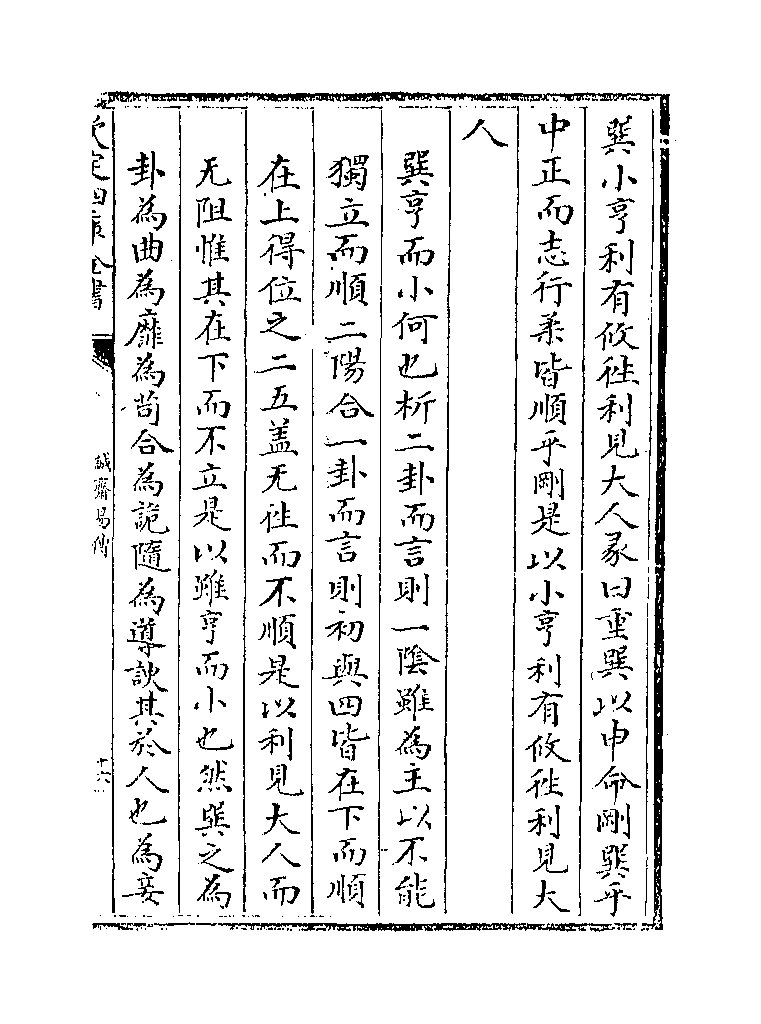 巽小亨利有攸徃利見大人彖曰重巽以申命剛巽乎
中正而志行柔皆順乎剛是以小亨利有攸徃利見大
人
巽亨而小何也析二卦而言則一隂雖為主以不能
獨立而順二陽合一卦而言則初與四皆在下而順
在上得位之二五盖无徃而不順是以利見大人而
无阻惟其在下而不立是以雖亨而小也然巽之為
卦為曲為靡為茍合為詭隨為導諛其於人也為妾
欽定四庫全書
誠齋易傳
十六